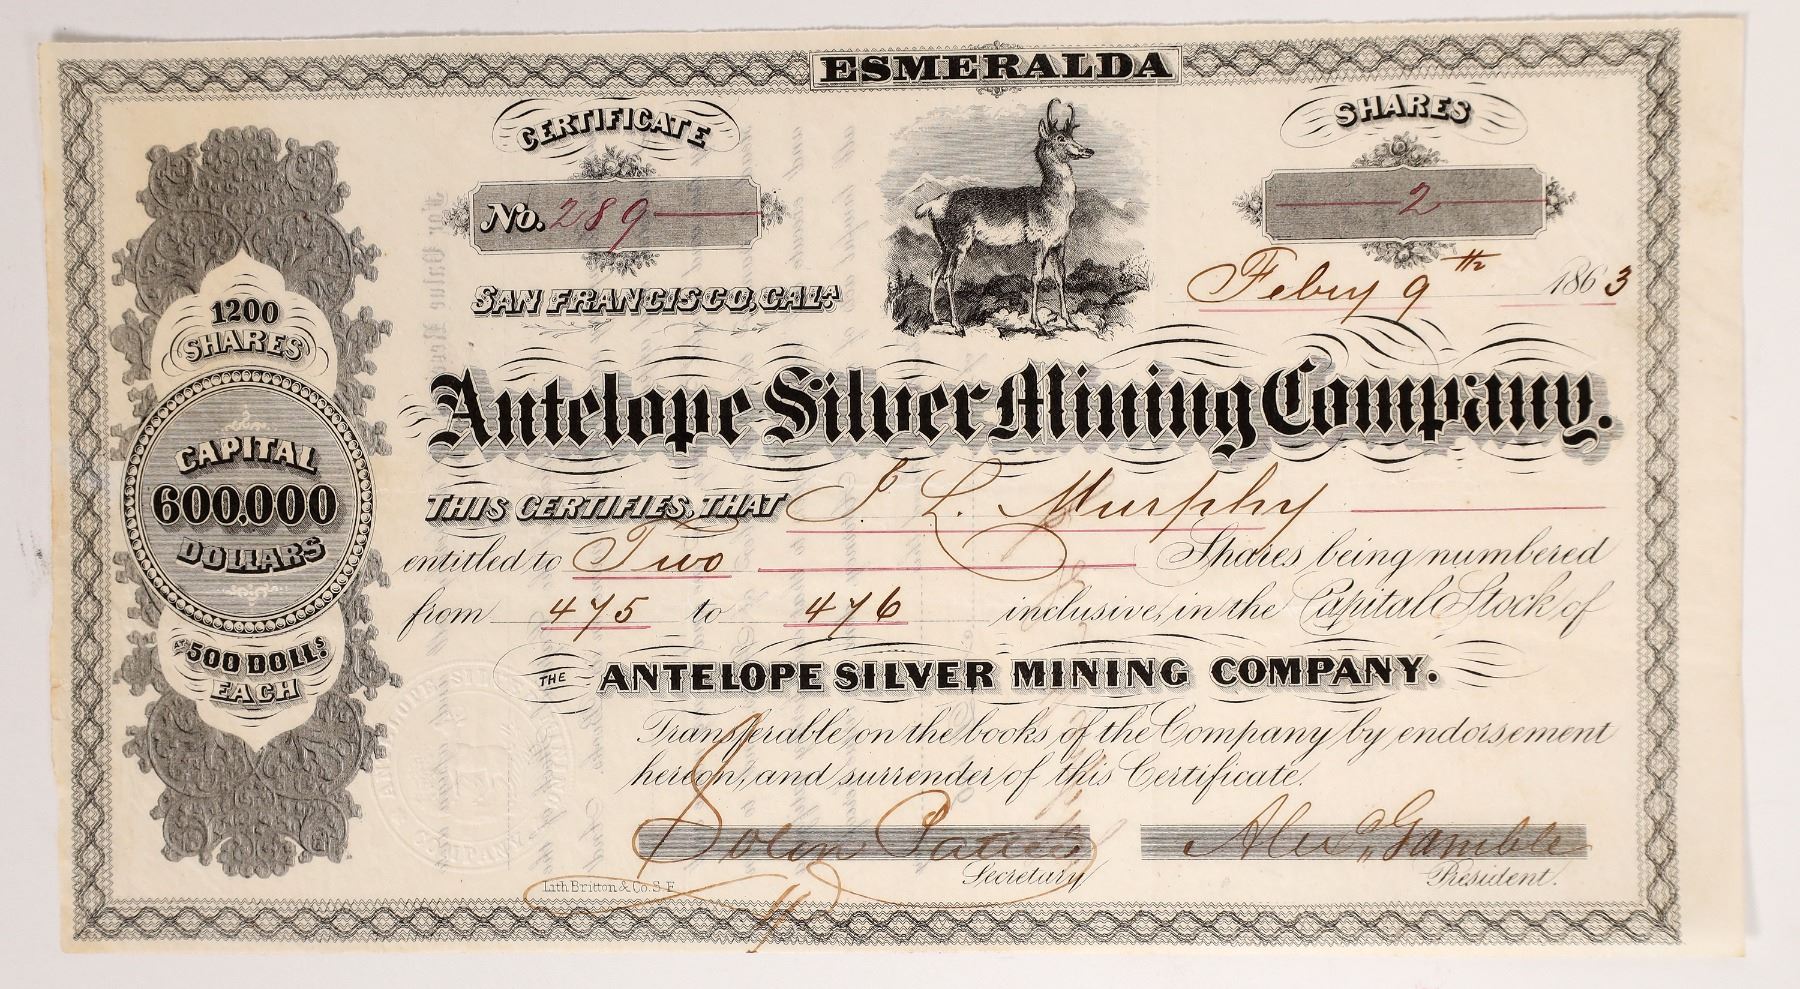 ESMERALDA
CERTIFICATE
No. 289
SHARES
2
SAN FRANCISCO, CALA.
Febry 9th 1863
1200
SHARES
CAPITAL
600,000
DOLLARS
AT 500 DOLLS.
EACH
Antelope Silver Mining Company.
THIS CERTIFIES, THAT J. L. Murphy
entitled to Two Shares being numbered
from 475 to 476 inclusive, in the Capital Stock of
THE ANTELOPE SILVER MINING COMPANY.
Transferable on the books of the Company by endorsement
hereon, and surrender of this Certificate.
Alex. Gamble
Secretary
President.
Lith Britton & Co. S. F.